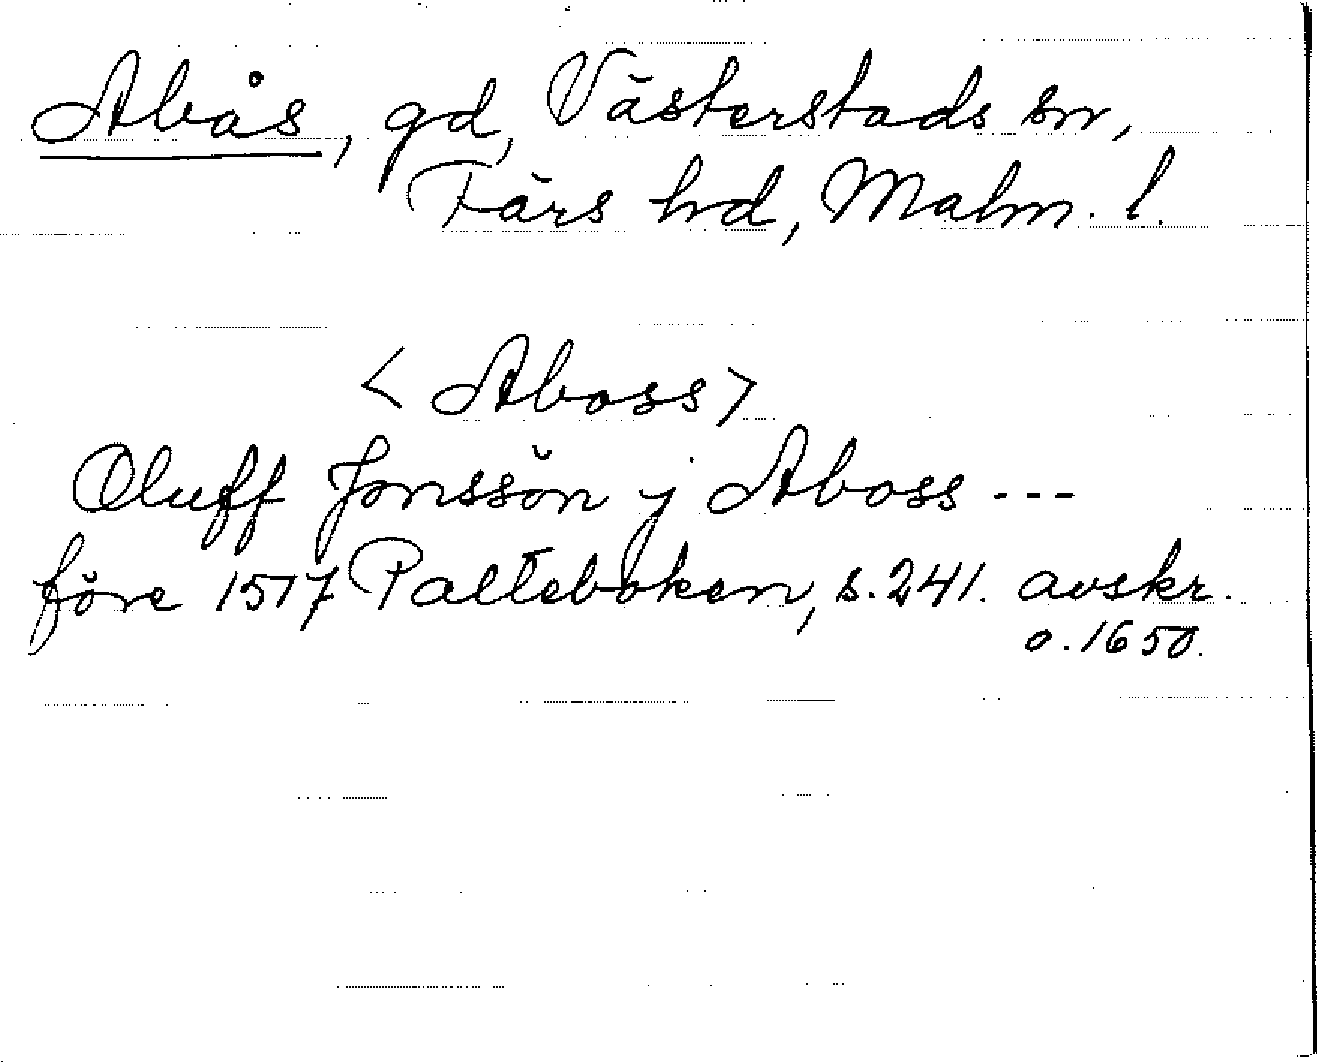 Abås, gd, Västerstads sn,
Färs hd, Malm. l.
<Aboss>
Oluff Jonssön j Aboss ---
före 1517 Palteboken, s. 241. avskr.
o. 1650.